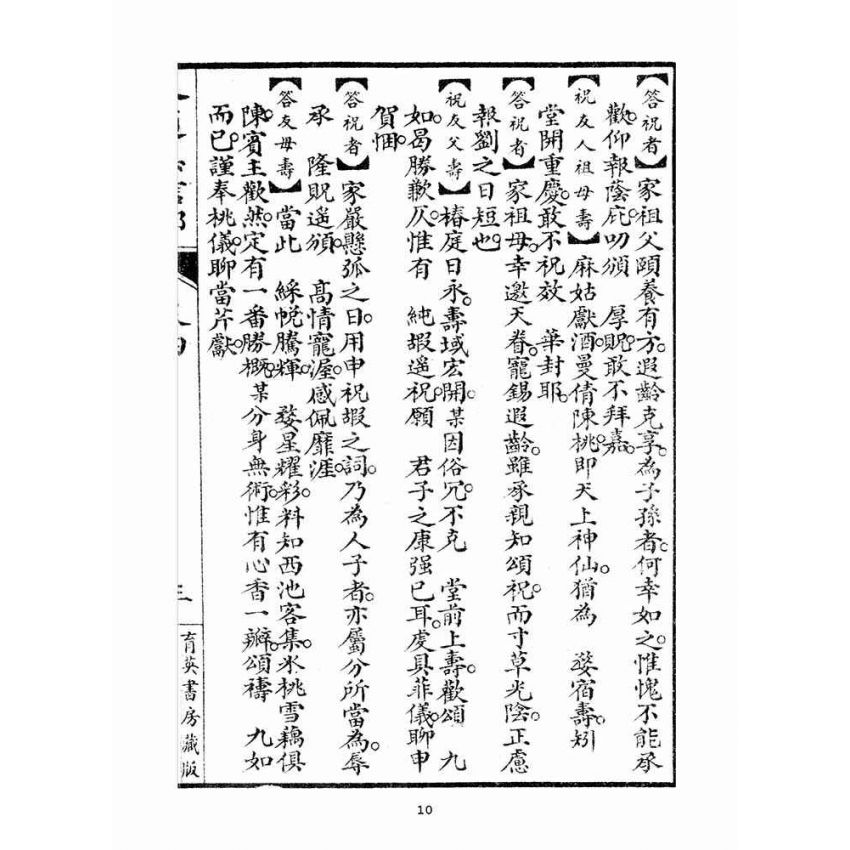 【答祝者】家祖父頤養有方。遐齡克享。為子孫者。何幸如之。惟愧不能承
歡。仰報蔭庇。叨頒　厚貺。敢不拜嘉。
【祝友人祖母壽】麻姑獻酒。曼倩陳桃。即天上神仙。猶為　婺宿壽。矧
堂開重慶。敢不祝效　華封耶。
【答祝者】家祖母。幸邀天眷。寵錫遐齡。雖承親知頌祝。而寸草光陰。正慮
報劉之日短也。
【祝友父壽】椿庭日永。壽域宏開。某因俗冗。不克　堂前上壽。歡頌　九
如。曷勝歉仄。惟有　純嘏遥祝。願　君子之康强已耳。虔具菲儀。聊申
賀悃。
【答祝者】家嚴懸弧之日。用申祝嘏之詞。乃為人子者。亦屬分所當為。辱
承　隆貺遥頒。　高情寵渥。感佩靡涯。
【答友母壽】當此　綵帨騰輝。　婺星耀彩。料知西池客集。氷桃雪藕。俱
陳。賓主歡然。定有一番勝概。某分身無術。惟有心香一瓣。頌禱　九如
而已。謹奉桃儀。聊當芹獻。
三
育英書房藏版
10